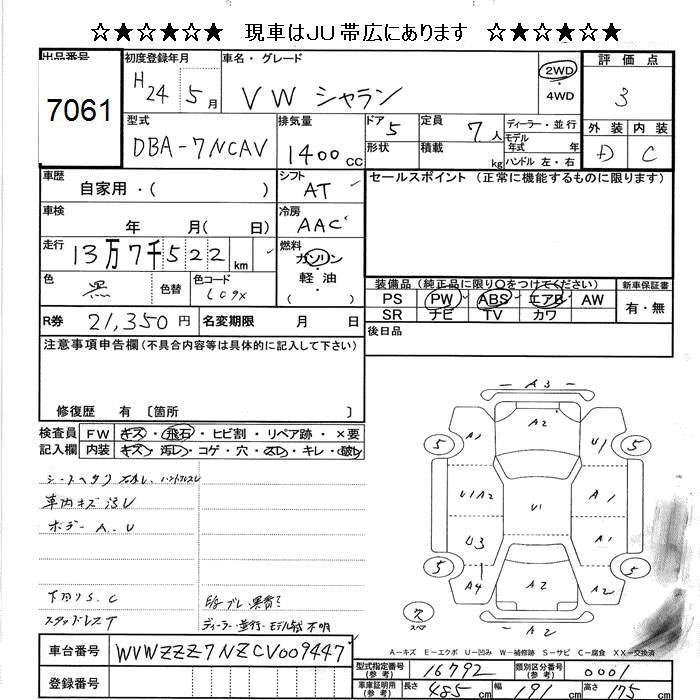 ☆★☆★☆★ 現車はJU帯広にあります ☆★☆★☆★
出品番号 初度登録年月 車名・グレード 評価点
7061 H24 5月 VW シャラン 2WD ・ 4WD 3
型式 排気量 ドア 5 定員 7人 ディーラー・並行 外装 内装
DBA-7NCAV 1400cc 形状 積載 kg モデル年式 年 ハンドル 左・右 D C
車歴 自家用・( ) シフト AT セールスポイント(正常に機能するものに限ります)
車検 年 月 ( 日) 冷房 AAC
走行 13万7千522km 燃料 ガソリン・軽油 ( )
色 黒 色替 色コード LC9X 装備品(純正品に限り○をつけてください) 新車保証書
PS PW ABS エアB AW 有・無
R券 21,350円 名変期限 月 日 SR ナビ TV カワ
注意事項申告欄(不具合内容等は具体的に記入して下さい) 後日品
修復歴 有 〔箇所 〕
検査員 FW キズ・飛石・ヒビ割・リペア跡・×要
記入欄 内装 キズ・汚レ・コゲ・穴・スレ・キレ・破レ
車内キズ汚レ
ボデー A.U
下回りS.C
スタッドレスT ディーラー・並行・モデル年式不明
A3
A2
A1 U1
5 5
U1A2 U1 A1
U3 A1
5 5
A4 A2 A2
欠 スペア A2
A-キズ E-エクボ U-凹み W-補修跡 S-サビ C-腐食 XX-交換済
車台番号 WVWZZZ7NZCV009447
型式指定番号(参考) 16792 類別区分番号(参考) 0001
登録番号 車庫証明用(参考) 長さ 485cm 幅 191cm 高さ 175cm